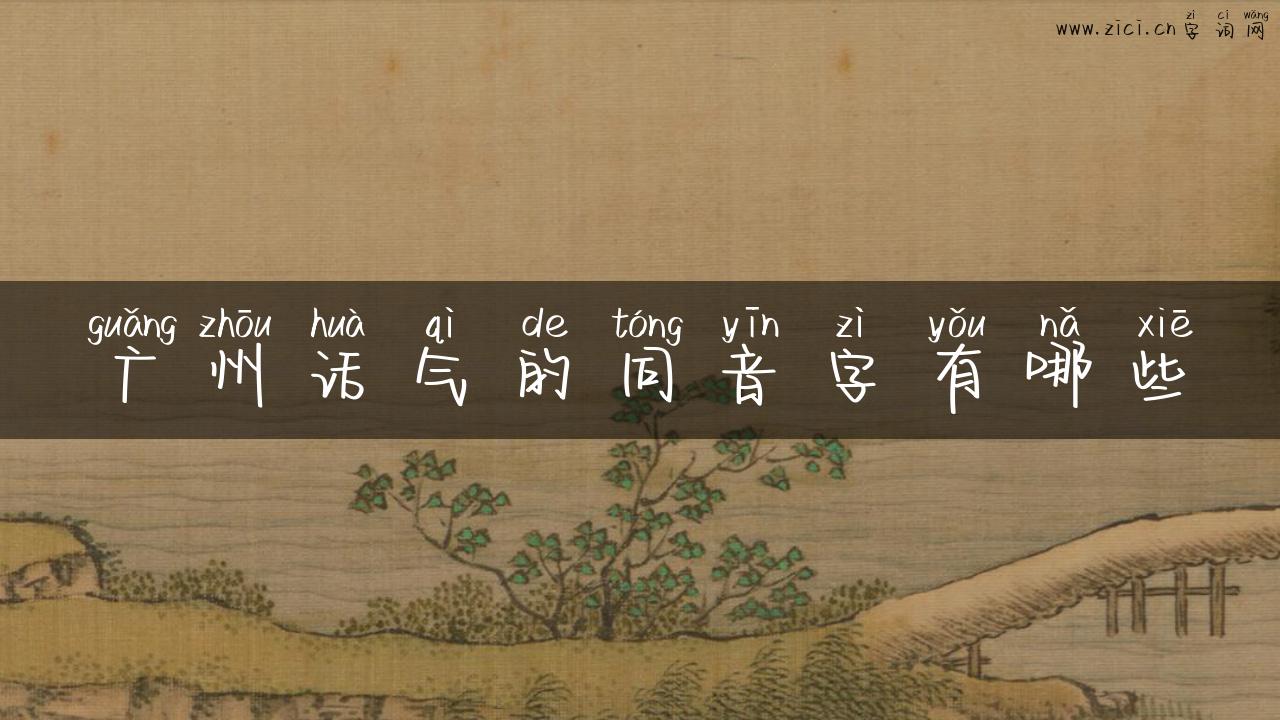 zì cí wǎng
www.zici.cn 字词网
guǎng zhōu huà qì de tóng yīn zì yǒu nǎ xiē
广州话气的同音字有哪些